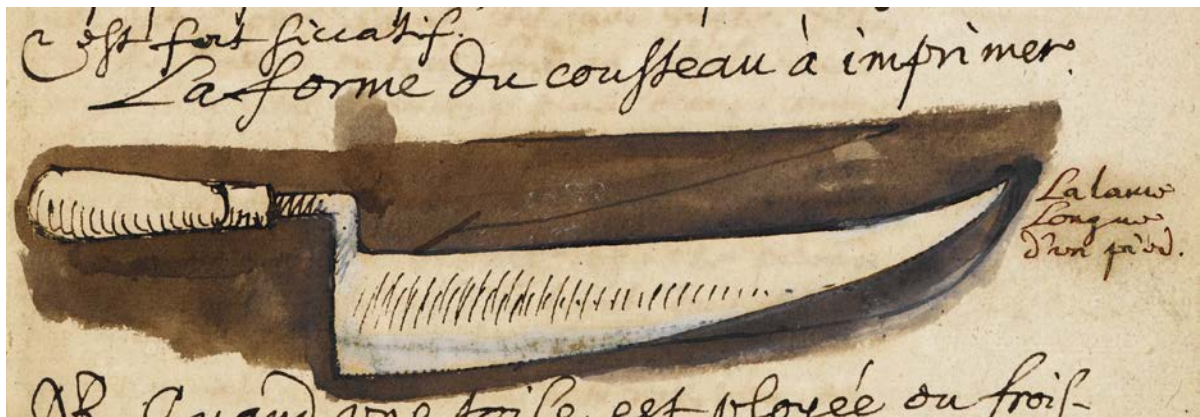 est fort siccatif.
La forme du cousteau à imprimer.
La lame
Longue
d'un pied.
NB. Quand une toile est ployée ou frois-